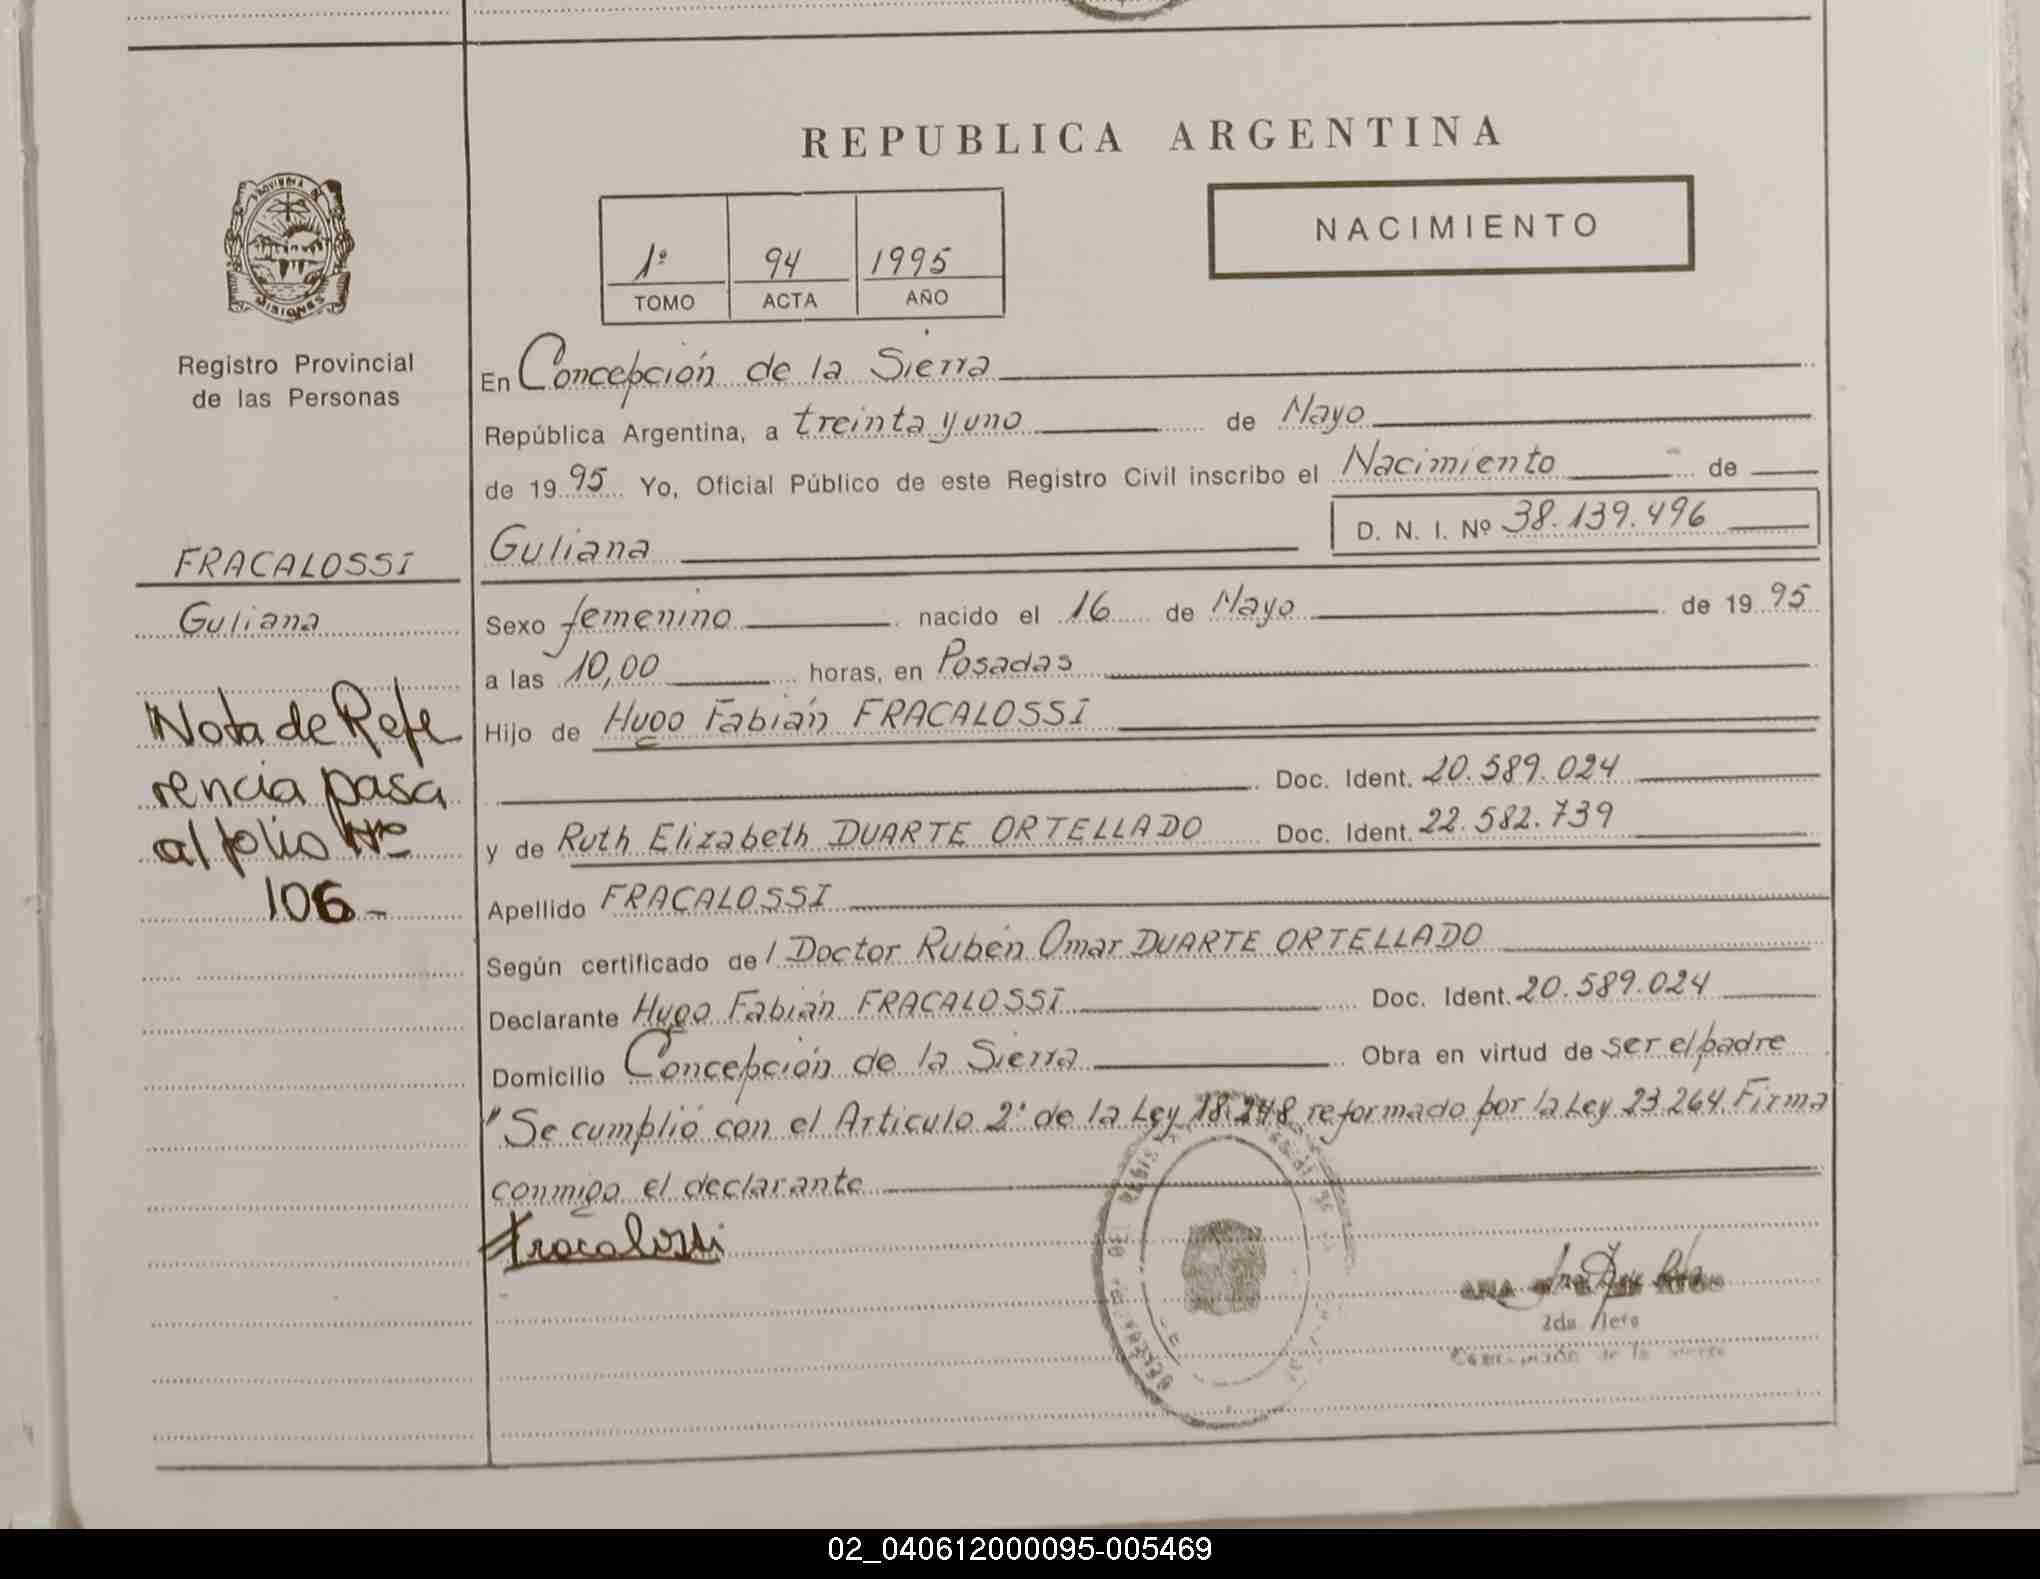 REPUBLICA ARGENTINA
NACIMIENTO
1º 94 1995
TOMO ACTA AÑO
PROVINCIA DE
MISIONES
Registro Provincial
de las Personas
FRACALOSSI
Guliana
Nota de Refe
rencia pasa
al folio Nro
106-
En Concepción de la Sierra
República Argentina, a treinta y uno de Mayo
de 19 95 Yo, Oficial Público de este Registro Civil inscribo el Nacimiento de
Guliana D. N. I. Nº 38.139.496
Sexo femenino nacido el 16 de Mayo de 19 95
a las 10,00 horas, en Posadas
Hijo de Hugo Fabián FRACALOSSI
Doc. Ident. 20.589.024
y de Ruth Elizabeth DUARTE ORTELLADO Doc. Ident. 22.582.739
Apellido FRACALOSSI
Según certificado de l Doctor Rubén Omar DUARTE ORTELLADO
Declarante Hugo Fabián FRACALOSSI Doc. Ident. 20.589.024
Domicilio Concepción de la Sierra Obra en virtud de ser el padre
"Se cumplió con el Articulo 2º de la Ley 18.248 reformado por la Ley 23.264. Firma
conmigo el declarante
Fracalossi
ANA
Concepción de la Sierra
02_040612000095-005469